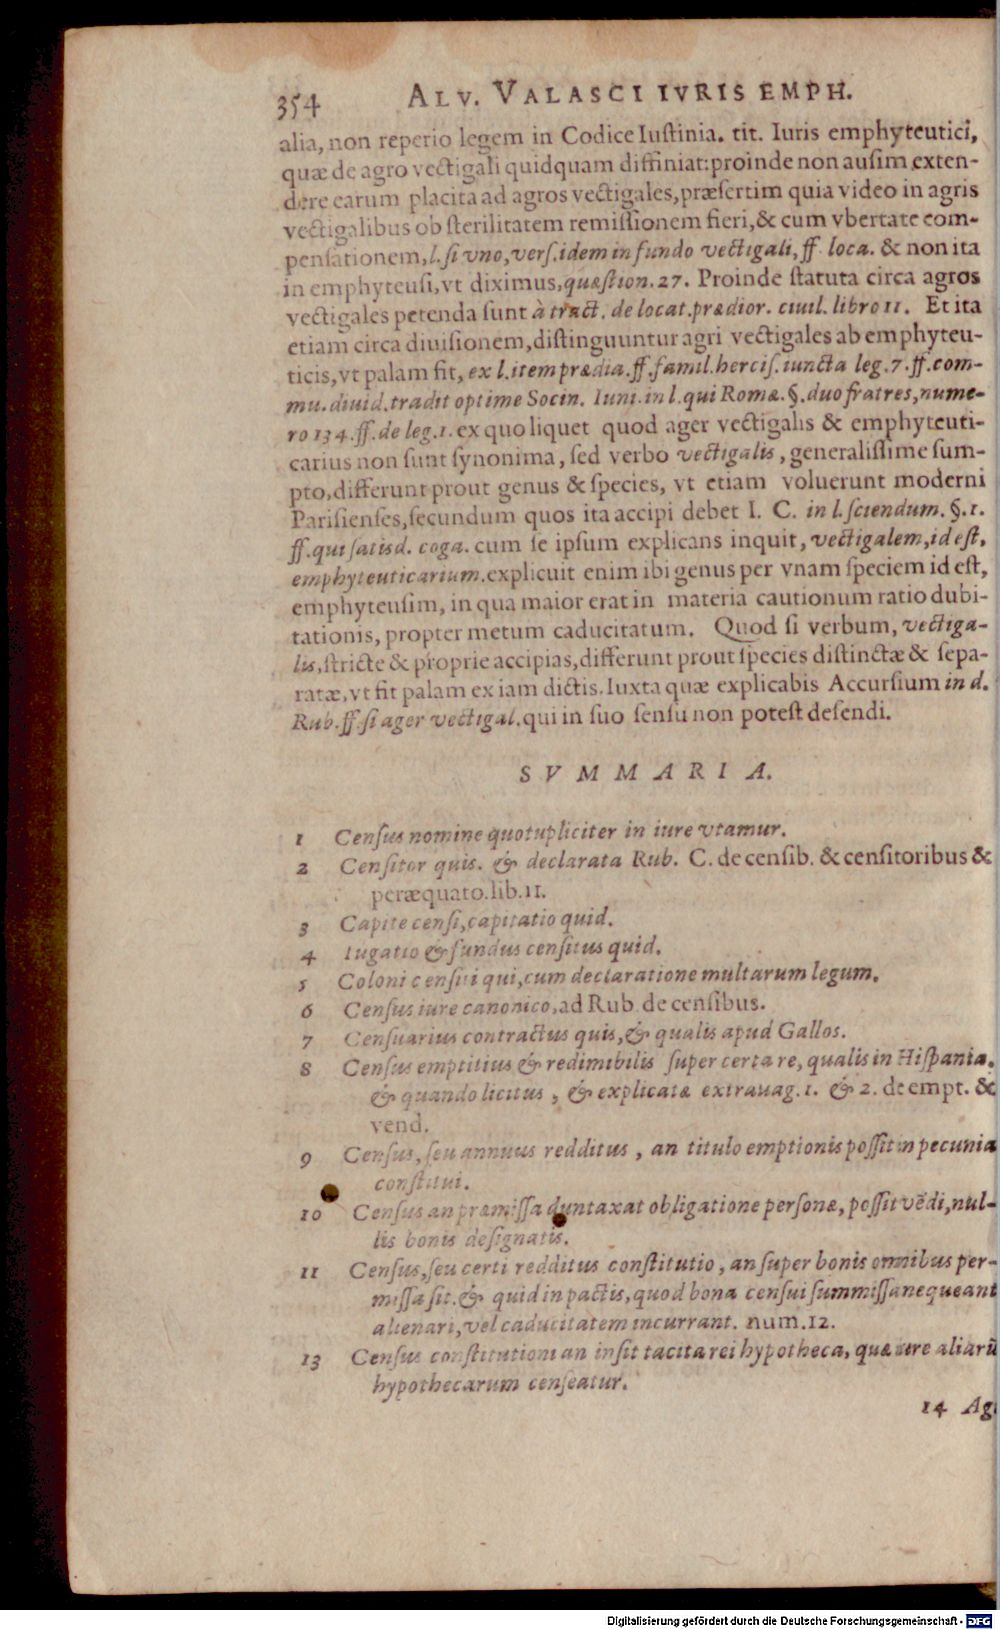 354 ALV. VALASCI IVRIS EMPH.
alia, non reperio legem in Codice Iuſtinia. tit. Iuris emphyteutici,
quæ de agro vectigali quidquam diffiniat: proinde non auſim exten-
dere earum placita ad agros vectigales, præſertim quia video in agris
vectigalibus ob ſterilitatem remiſſionem fieri, & cum vbertate com-
penſationem, l. ſi vno, verſ. idem in fundo vectigali, ff. loca. & non ita
in emphyteuſi, vt diximus, quæſtion. 27. Proinde ſtatuta circa agros
vectigales petenda ſunt à tract. de locat. prædior. ciuil. libro 11. Et ita
etiam circa diuiſionem, diſtinguuntur agri vectigales ab emphyteu-
ticis, vt palam fit, ex l. item prædia. ff. famil. herciſ. iuncta leg. 7. ff. com-
mu. diuid. tradit optime Socin. Iuni. in l. qui Romæ. §. duo fratres, nume-
ro 134. ff. de leg. 1. ex quo liquet quod ager vectigalis & emphyteuti-
carius non ſunt ſynonima, ſed verbo vectigalis, generaliſſime ſum-
pto, differunt prout genus & ſpecies, vt etiam voluerunt moderni
Pariſienſes, ſecundum quos ita accipi debet I. C. in l. ſciendum. §. 1.
ff. qui ſatisd. coga. cum ſe ipſum explicans inquit, vectigalem, id eſt,
emphyteuticarium. explicuit enim ibi genus per vnam ſpeciem id eſt,
emphyteuſim, in qua maior erat in materia cautionum ratio dubi-
tationis, propter metum caducitatum. Quod ſi verbum, vectiga-
lis, ſtricte & proprie accipias, differunt prout ſpecies diſtinctæ & ſepa-
ratæ, vt fit palam ex iam dictis. Iuxta quæ explicabis Accurſium in d.
Rub. ff. ſi ager vectigal. qui in ſuo ſenſu non poteſt defendi.
SVMMARIA.
1 Cenſus nomine quotupliciter in iure vtamur.
2 Cenſitor quis. & declarata Rub. C. de cenſib. & cenſitoribus &
peræquato. lib. 11.
3 Capite cenſi, capitatio quid.
4 Iugatio & fundus cenſitus quid.
5 Coloni cenſiti qui, cum declaratione multarum legum.
6 Cenſus iure canonico, ad Rub. de cenſibus.
7 Cenſuarius contractus quis, & qualis apud Gallos.
8 Cenſus emptitius & redimibilis ſuper certa re, qualis in Hiſpania.
& quando licitus, & explicatæ extrauag. 1. & 2. de empt. &
vend.
9 Cenſus, ſeu annuus redditus, an titulo emptionis poſſit in pecunia
conſtitui.
10 Cenſus an præmiſſa duntaxat obligatione perſonæ, poſſit vēdi, nul-
lis bonis deſignatis.
11 Cenſus, ſeu certi redditus conſtitutio, an ſuper bonis omnibus per-
miſſa ſit. & quid in pactis, quod bona cenſui ſummiſſa nequeant
alienari, vel caducitatem incurrant. num. 12.
13 Cenſus conſtitutioni an inſit tacita rei hypotheca, quæ iure aliarū
hypothecarum cenſeatur.
14 Ag
Digitalisierung gefördert durch die Deutsche Forschungsgemeinschaft - DFG